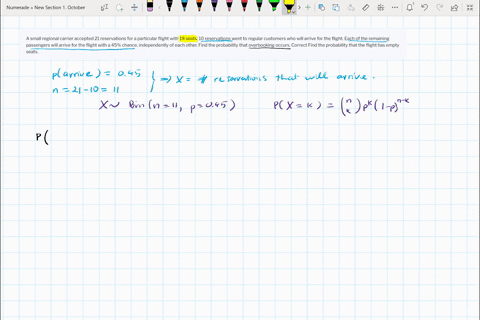 Numerade » New Section 1. October
A small regional carrier accepted 21 reservations for a particular flight with 19 seats. 10 reservations went to regular customers who will arrive for the flight. Each of the remaining
passengers will arrive for the flight with a 45% chance, independently of each other. Find the probability that overbooking occurs. Correct Find the probability that the flight has empty
seats.
p(arrive) = 0.45 } ⇒ X = # reservations that will arrive.
n = 21-10 = 11
X ~ Bin(n=11, p=0.45) P(X=k) = (n k) p^k (1-p)^{n-k}
P(